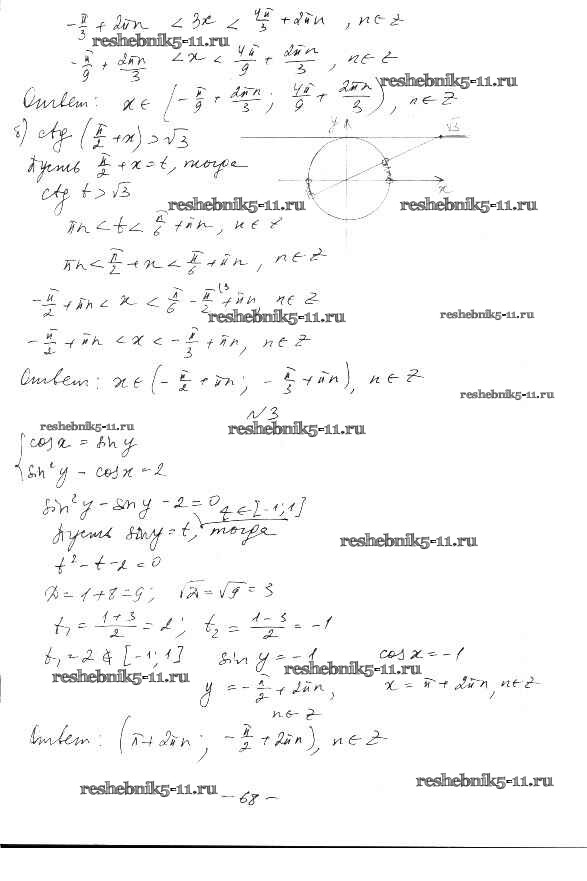 -π/3 + 2πn < 3x < 4π/3 + 2πn, n∈Z
reshebnik5-11.ru
-π/9 + 2πn/3 < x < 4π/9 + 2πn/3, n∈Z
reshebnik5-11.ru
Ответ: x∈(-π/9 + 2πn/3; 4π/9 + 2πn/3), n∈Z
б) ctg(π/2 + x) > √3
y
√3
Пусть π/2 + x = t, тогда
x
ctg t > √3
reshebnik5-11.ru
reshebnik5-11.ru
πn < t < π/6 + πn, n∈Z
πn < π/2 + x < π/6 + πn, n∈Z
-π/2 + πn < x < π/6 - π/2 (3 + πn, n∈Z
reshebnik5-11.ru
reshebnik5-11.ru
-π/2 + πn < x < -π/3 + πn, n∈Z
Ответ: x∈(-π/2 + πn; -π/3 + πn), n∈Z
reshebnik5-11.ru
N3
reshebnik5-11.ru
reshebnik5-11.ru
{cos x = sin y
sin²y - cos x = 2
sin²y - sin y - 2 = 0
Пусть sin y = t, тогда t∈[-1;1]
reshebnik5-11.ru
t² - t - 2 = 0
D = 1+8 = 9; √D = √9 = 3
t₁ = (1+3)/2 = 2; t₂ = (1-3)/2 = -1
t₁ = 2 ∉ [-1;1] sin y = -1 cos x = -1
reshebnik5-11.ru
reshebnik5-11.ru
y = -π/2 + 2πn, x = π + 2πn, n∈Z
n∈Z
Ответ: (π + 2πn; -π/2 + 2πn), n∈Z
reshebnik5-11.ru
reshebnik5-11.ru
- 68 -